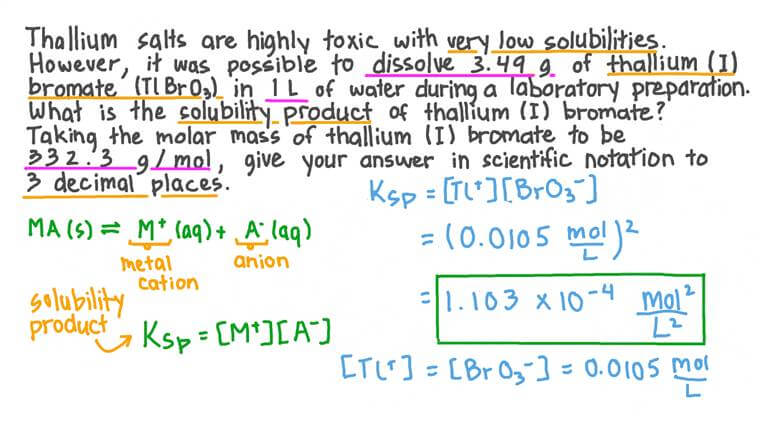 Thallium salts are highly toxic with very low solubilities.
However, it was possible to dissolve 3.49 g of thallium (I)
bromate (TlBrO₃) in 1 L of water during a laboratory preparation.
What is the solubility product of thallium (I) bromate?
Taking the molar mass of thallium (I) bromate to be
332.3 g/mol, give your answer in scientific notation to
3 decimal places.
Ksp = [Tl⁺][BrO₃⁻]
MA(s) ⇌ M⁺(aq) + A⁻(aq)
metal cation
anion
= (0.0105 mol/L)²
= 1.103 × 10⁻⁴ mol²/L²
solubility
product
Ksp = [M⁺][A⁻]
[Tl⁺] = [BrO₃⁻] = 0.0105 mol/L